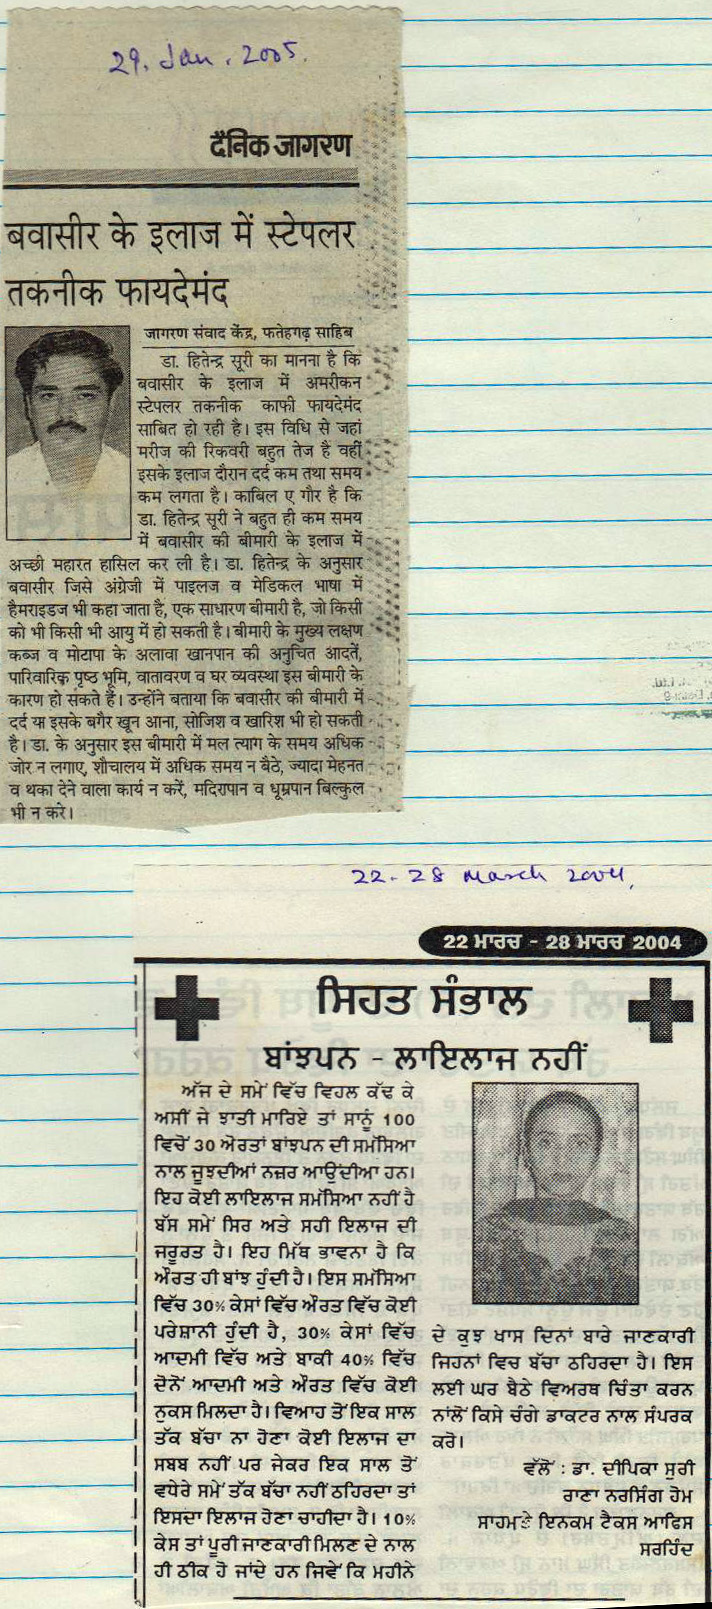 29. Jan. 2005.
दैनिक जागरण
बवासीर के इलाज में स्टेपलर
तकनीक फायदेमंद
जागरण संवाद केंद्र, फतेहगढ़ साहिब
डा. हितेन्द्र सूरी का मानना है कि
बवासीर के इलाज में अमरीकन
स्टेपलर तकनीक काफी फायदेमंद
साबित हो रही है। इस विधि से जहां
मरीज की रिकवरी बहुत तेज है वहीं
इसके इलाज दौरान दर्द कम तथा समय
कम लगता है। काबिल ए गौर है कि
डा. हितेन्द्र सूरी ने बहुत ही कम समय
में बवासीर की बीमारी के इलाज में
अच्छी महारत हासिल कर ली है। डा. हितेन्द्र के अनुसार
बवासीर जिसे अंग्रेजी में पाइलज व मेडिकल भाषा में
हैमराइडज भी कहा जाता है, एक साधारण बीमारी है, जो किसी
को भी किसी भी आयु में हो सकती है। बीमारी के मुख्य लक्षण
कब्ज व मोटापा के अलावा खानपान की अनुचित आदतें,
पारिवारिक पृष्ठ भूमि, वातावरण व घर व्यवस्था इस बीमारी के
कारण हो सकते हैं। उन्होंने बताया कि बवासीर की बीमारी में
दर्द या इसके बगैर खून आना, सोजिश व खारिश भी हो सकती
है। डा. के अनुसार इस बीमारी में मल त्याग के समय अधिक
जोर न लगाए, शौचालय में अधिक समय न बैठे, ज्यादा मेहनत
व थका देने वाला कार्य न करें, मदिरापान व धूम्रपान बिल्कुल
भी न करे।
22-28 March 2004,
22 ਮਾਰਚ - 28 ਮਾਰਚ 2004
ਸਿਹਤ ਸੰਭਾਲ
ਬਾਂਝਪਨ - ਲਾਇਲਾਜ ਨਹੀਂ
ਅੱਜ ਦੇ ਸਮੇਂ ਵਿੱਚ ਵਿਹਲ ਕੱਢ ਕੇ
ਅਸੀਂ ਜੇ ਝਾਤੀ ਮਾਰਿਏ ਤਾਂ ਸਾਨੂੰ 100
ਵਿਚੋਂ 30 ਔਰਤਾਂ ਬਾਂਝਪਨ ਦੀ ਸਮੱਸਿਆ
ਨਾਲ ਜੂਝਦੀਆਂ ਨਜ਼ਰ ਆਉਂਦੀਆ ਹਨ।
ਇਹ ਕੋਈ ਲਾਇਲਾਜ ਸਮੱਸਿਆ ਨਹੀਂ ਹੈ
ਬੱਸ ਸਮੇਂ ਸਿਰ ਅਤੇ ਸਹੀ ਇਲਾਜ ਦੀ
ਜਰੂਰਤ ਹੈ। ਇਹ ਮਿੱਥ ਭਾਵਨਾ ਹੈ ਕਿ
ਔਰਤ ਹੀ ਬਾਂਝ ਹੁੰਦੀ ਹੈ। ਇਸ ਸਮੱਸਿਆ
ਵਿੱਚ 30% ਕੇਸਾਂ ਵਿੱਚ ਔਰਤ ਵਿੱਚ ਕੋਈ
ਪਰੇਸ਼ਾਨੀ ਹੁੰਦੀ ਹੈ, 30% ਕੇਸਾਂ ਵਿੱਚ
ਆਦਮੀ ਵਿੱਚ ਅਤੇ ਬਾਕੀ 40% ਵਿੱਚ
ਦੋਨੋਂ ਆਦਮੀ ਅਤੇ ਔਰਤ ਵਿੱਚ ਕੋਈ
ਨੁਕਸ ਮਿਲਦਾ ਹੈ। ਵਿਆਹ ਤੋਂ ਇਕ ਸਾਲ
ਤੱਕ ਬੱਚਾ ਨਾ ਹੋਣਾ ਕੋਈ ਇਲਾਜ ਦਾ
ਸਬਬ ਨਹੀਂ ਪਰ ਜੇਕਰ ਇਕ ਸਾਲ ਤੋਂ
ਵਧੇਰੇ ਸਮੇਂ ਤੱਕ ਬੱਚਾ ਨਹੀਂ ਠਹਿਰਦਾ ਤਾਂ
ਇਸਦਾ ਇਲਾਜ ਹੋਣਾ ਚਾਹੀਦਾ ਹੈ। 10%
ਕੇਸ ਤਾਂ ਪੂਰੀ ਜਾਣਕਾਰੀ ਮਿਲਣ ਦੇ ਨਾਲ
ਹੀ ਠੀਕ ਹੋ ਜਾਂਦੇ ਹਨ ਜਿਵੇਂ ਕਿ ਮਹੀਨੇ
ਦੇ ਕੁਝ ਖਾਸ ਦਿਨਾਂ ਬਾਰੇ ਜਾਣਕਾਰੀ
ਜਿਹਨਾਂ ਵਿਚ ਬੱਚਾ ਠਹਿਰਦਾ ਹੈ। ਇਸ
ਲਈ ਘਰ ਬੈਠੇ ਵਿਅਰਥ ਚਿੰਤਾ ਕਰਨ
ਨਾਲੋਂ ਕਿਸੇ ਚੰਗੇ ਡਾਕਟਰ ਨਾਲ ਸੰਪਰਕ
ਕਰੋ।
ਵੱਲੋਂ : ਡਾ. ਦੀਪਿਕਾ ਸੂਰੀ
ਰਾਣਾ ਨਰਸਿੰਗ ਹੋਮ
ਸਾਹਮਣੇ ਇਨਕਮ ਟੈਕਸ ਆਫਿਸ
ਸਰਹਿੰਦ